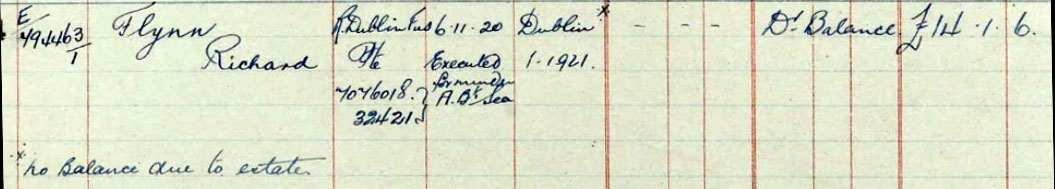 E/ Flynn R. Dublin Fus 6·11·20 Dublin * - - - Dr Balance. £14·1·6.
494463/1 Richard Pte Executed 1·1921.
7076018. }
32421 } A. Bt Sea
* No Balance due to estate.